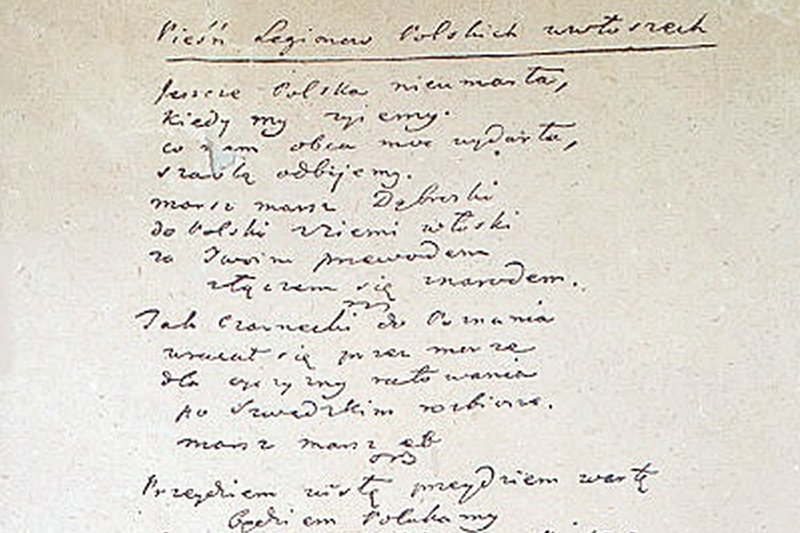 Pieśń Legionow Polskich wewłoszech
Jeszcze Polska nieumarła,
kiedy my żyiemy.
co nam obca moc wydarła,
szablą odbijemy.
marsz marsz Dąbroski
do Polski zziemi włoski
za Twoim przewodem
złączem się znarodem.
Jak Czarnecki do Poznania
wracał się przez morze
dla ojczyzny ratowania
po Szwedzkim rozbiorze.
marsz marsz etc
Przejdziem wisłę przejdziem wartę
będziem Polakamy